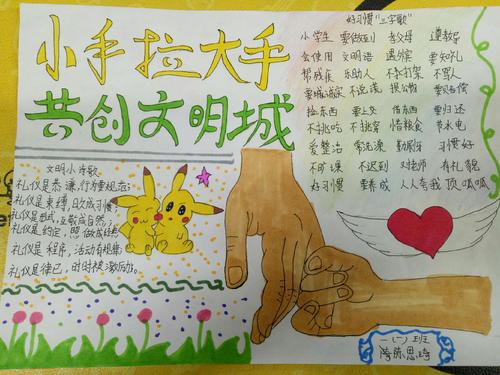 小手拉大手
共创文明城
好习惯"三字歌"
小学生 要做到 孝父母 遵教导
会使用 文明语 遇外宾 要知礼
帮残疾 乐助人 不打架 不骂人
要诚实 不说谎 损公物 要赔偿
捡东西 要上交 借东西 要归还
不挑吃 不挑穿 惜粮食 节水电
爱整洁 常洗澡 勤锻炼 习惯好
不旷课 不迟到 对老师 有礼貌
好习惯 要养成 人人夸我 顶呱呱
文明小诗歌
礼仪是 谦 行为要规范
礼仪是束缚,
礼仪是
礼仪是约定,
礼仪是程序,活动有规律
礼仪是律己,时时被激励
一(一)班
陈思琦